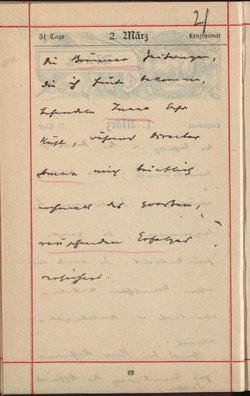 31 Tage 2. März Lenzmonat
die Brünner Zeitungen,
die ich heute bekomme,
behandeln Inara sehr
kühl, während Director
mich brieflich
nochmals des großen,
rauschenden Erfolges
versichert.
62